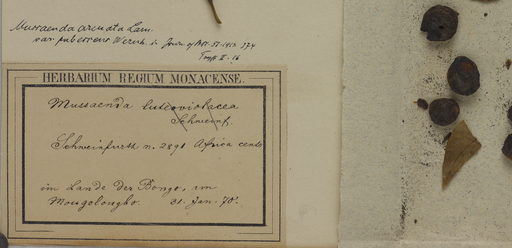 Mussaenda arcuata Lam.
var. pubescens Wernh. in Journ. of Bot. 51. 1913. 274
HERBARIUM REGIUM MONACENSE.
Mussaenda luteoviolacea
Schweinf.
Schweinfurth n. 2890 Africa centr.
im Lande der Bongo, um
Mongolongbo. 31. Jan. 70.